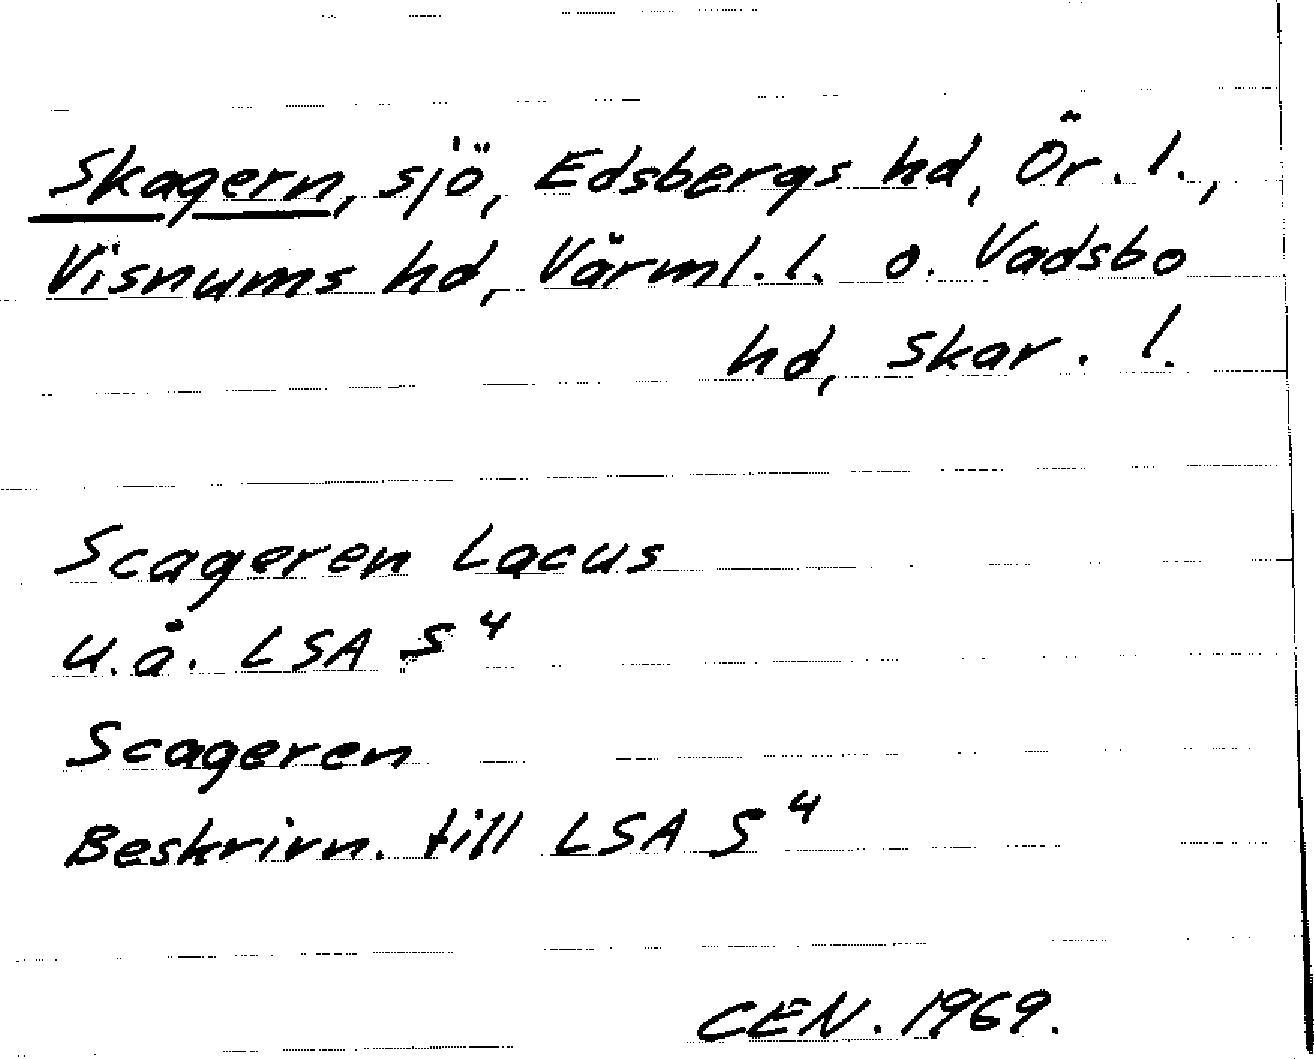 Skagern, sjö, Edsbergs hd, Ör. l.,
Visnums hd, Värml. l. o. Vadsbo
hd, Skar. l.
Scageren Lacus
U.å. LSA S⁴
Scageren
Beskrivn. till LSA S⁴
CEN. 1969.